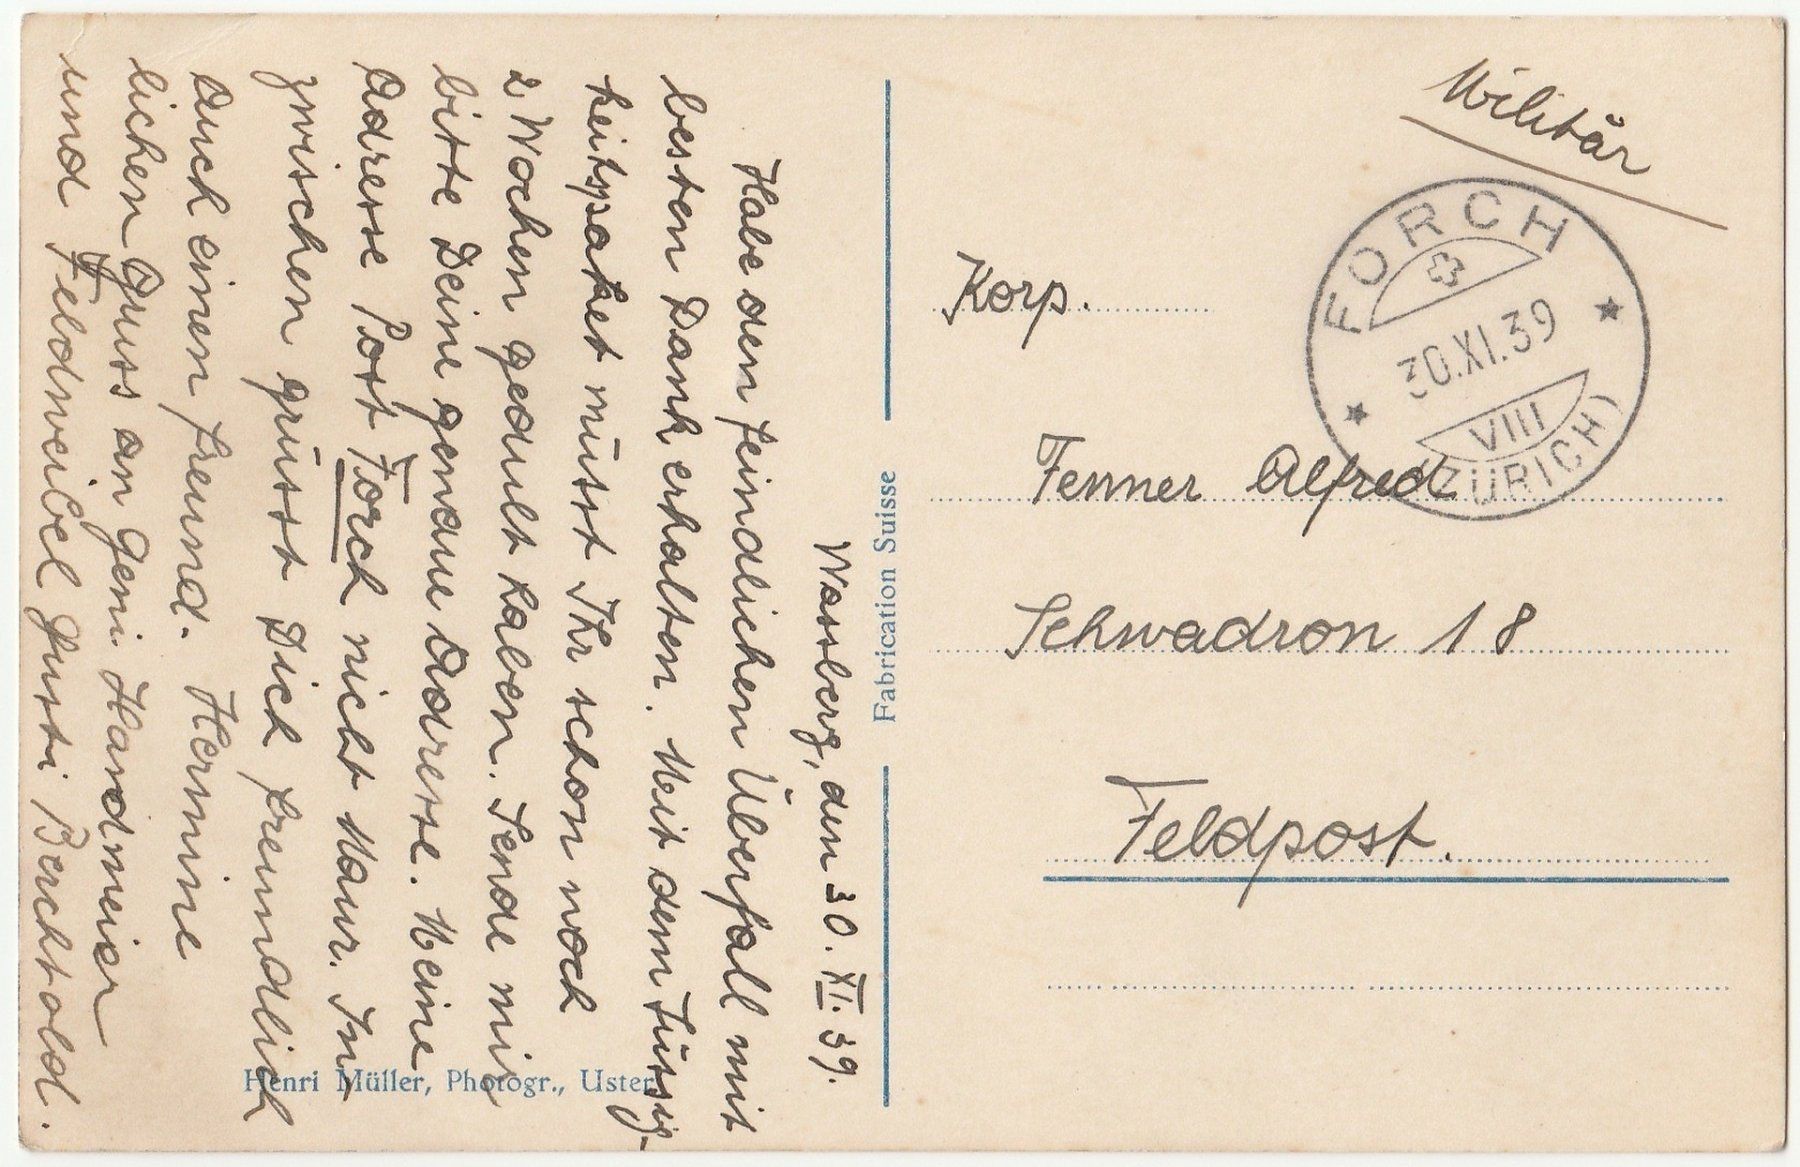 Wassberg, den 30. XI. 39.
Habe den feindlichen Überfall mit
besten Dank erhalten. Mit dem Füssig-
keitspaket müsst Ihr schon noch
2 Wochen gedult haben. Sende mir
bitte Deine genaue Adresse. Meine
Adresse Post Forch nicht Maur. In
zwischen grüsst Dich freundlich
auch einen freund. Hermine
lichen Gruss an Geni Handmeier
und Feldweibel Gusti Berchtold.
Henri Müller, Photogr., Uster
Fabrication Suisse
Militär
FORCH
30.XI.39
VIII
(ZÜRICH)
Korp.
Fenner Alfred
Schwadron 18
Feldpost.